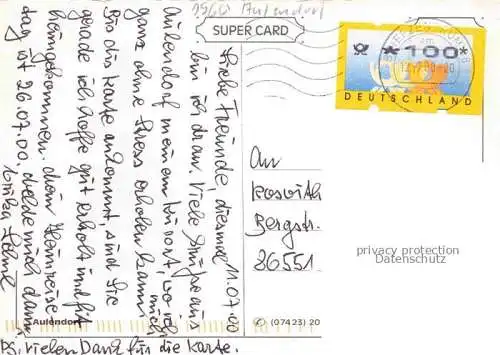 Aulendorf
SUPER CARD
*100*
DEUTSCHLAND
11.07.00
Liebe Freunde, diesmal
bin ich dran. Viele Grüße aus
Aulendorf meinem Kurort, wo ich mich
ganz ohne Stress erholen kann.
Bis die Karte ankommt, sind Sie
gerade ich hoffe gut erholt und fit
heimgekommen. Mein Heimreise-
tag ist 26.07.00, melde mich dann.
An
Roswith
Bergstr.
86551
privacy protection
Datenschutz
Aulendorf
(07423) 20
PS: vielen Dank für die Karte.